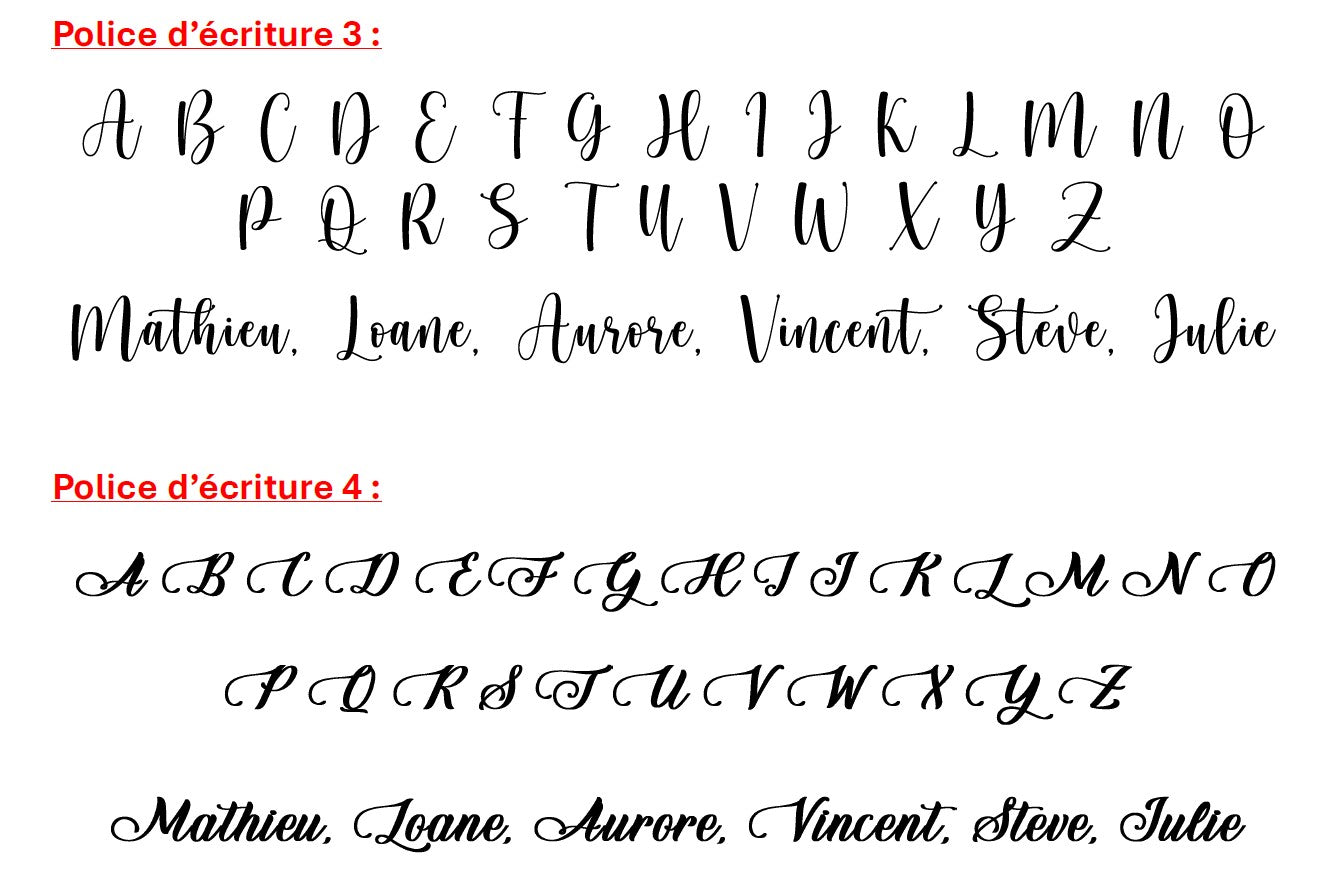 Police d’écriture 3 :
A B C D E F G H I J K L M N O
P Q R S T U V W X Y Z
Mathieu, Loane, Aurore, Vincent, Steve, Julie
Police d’écriture 4 :
A B C D E F G H I J K L M N O
P Q R S T U V W X Y Z
Mathieu, Loane, Aurore, Vincent, Steve, Julie